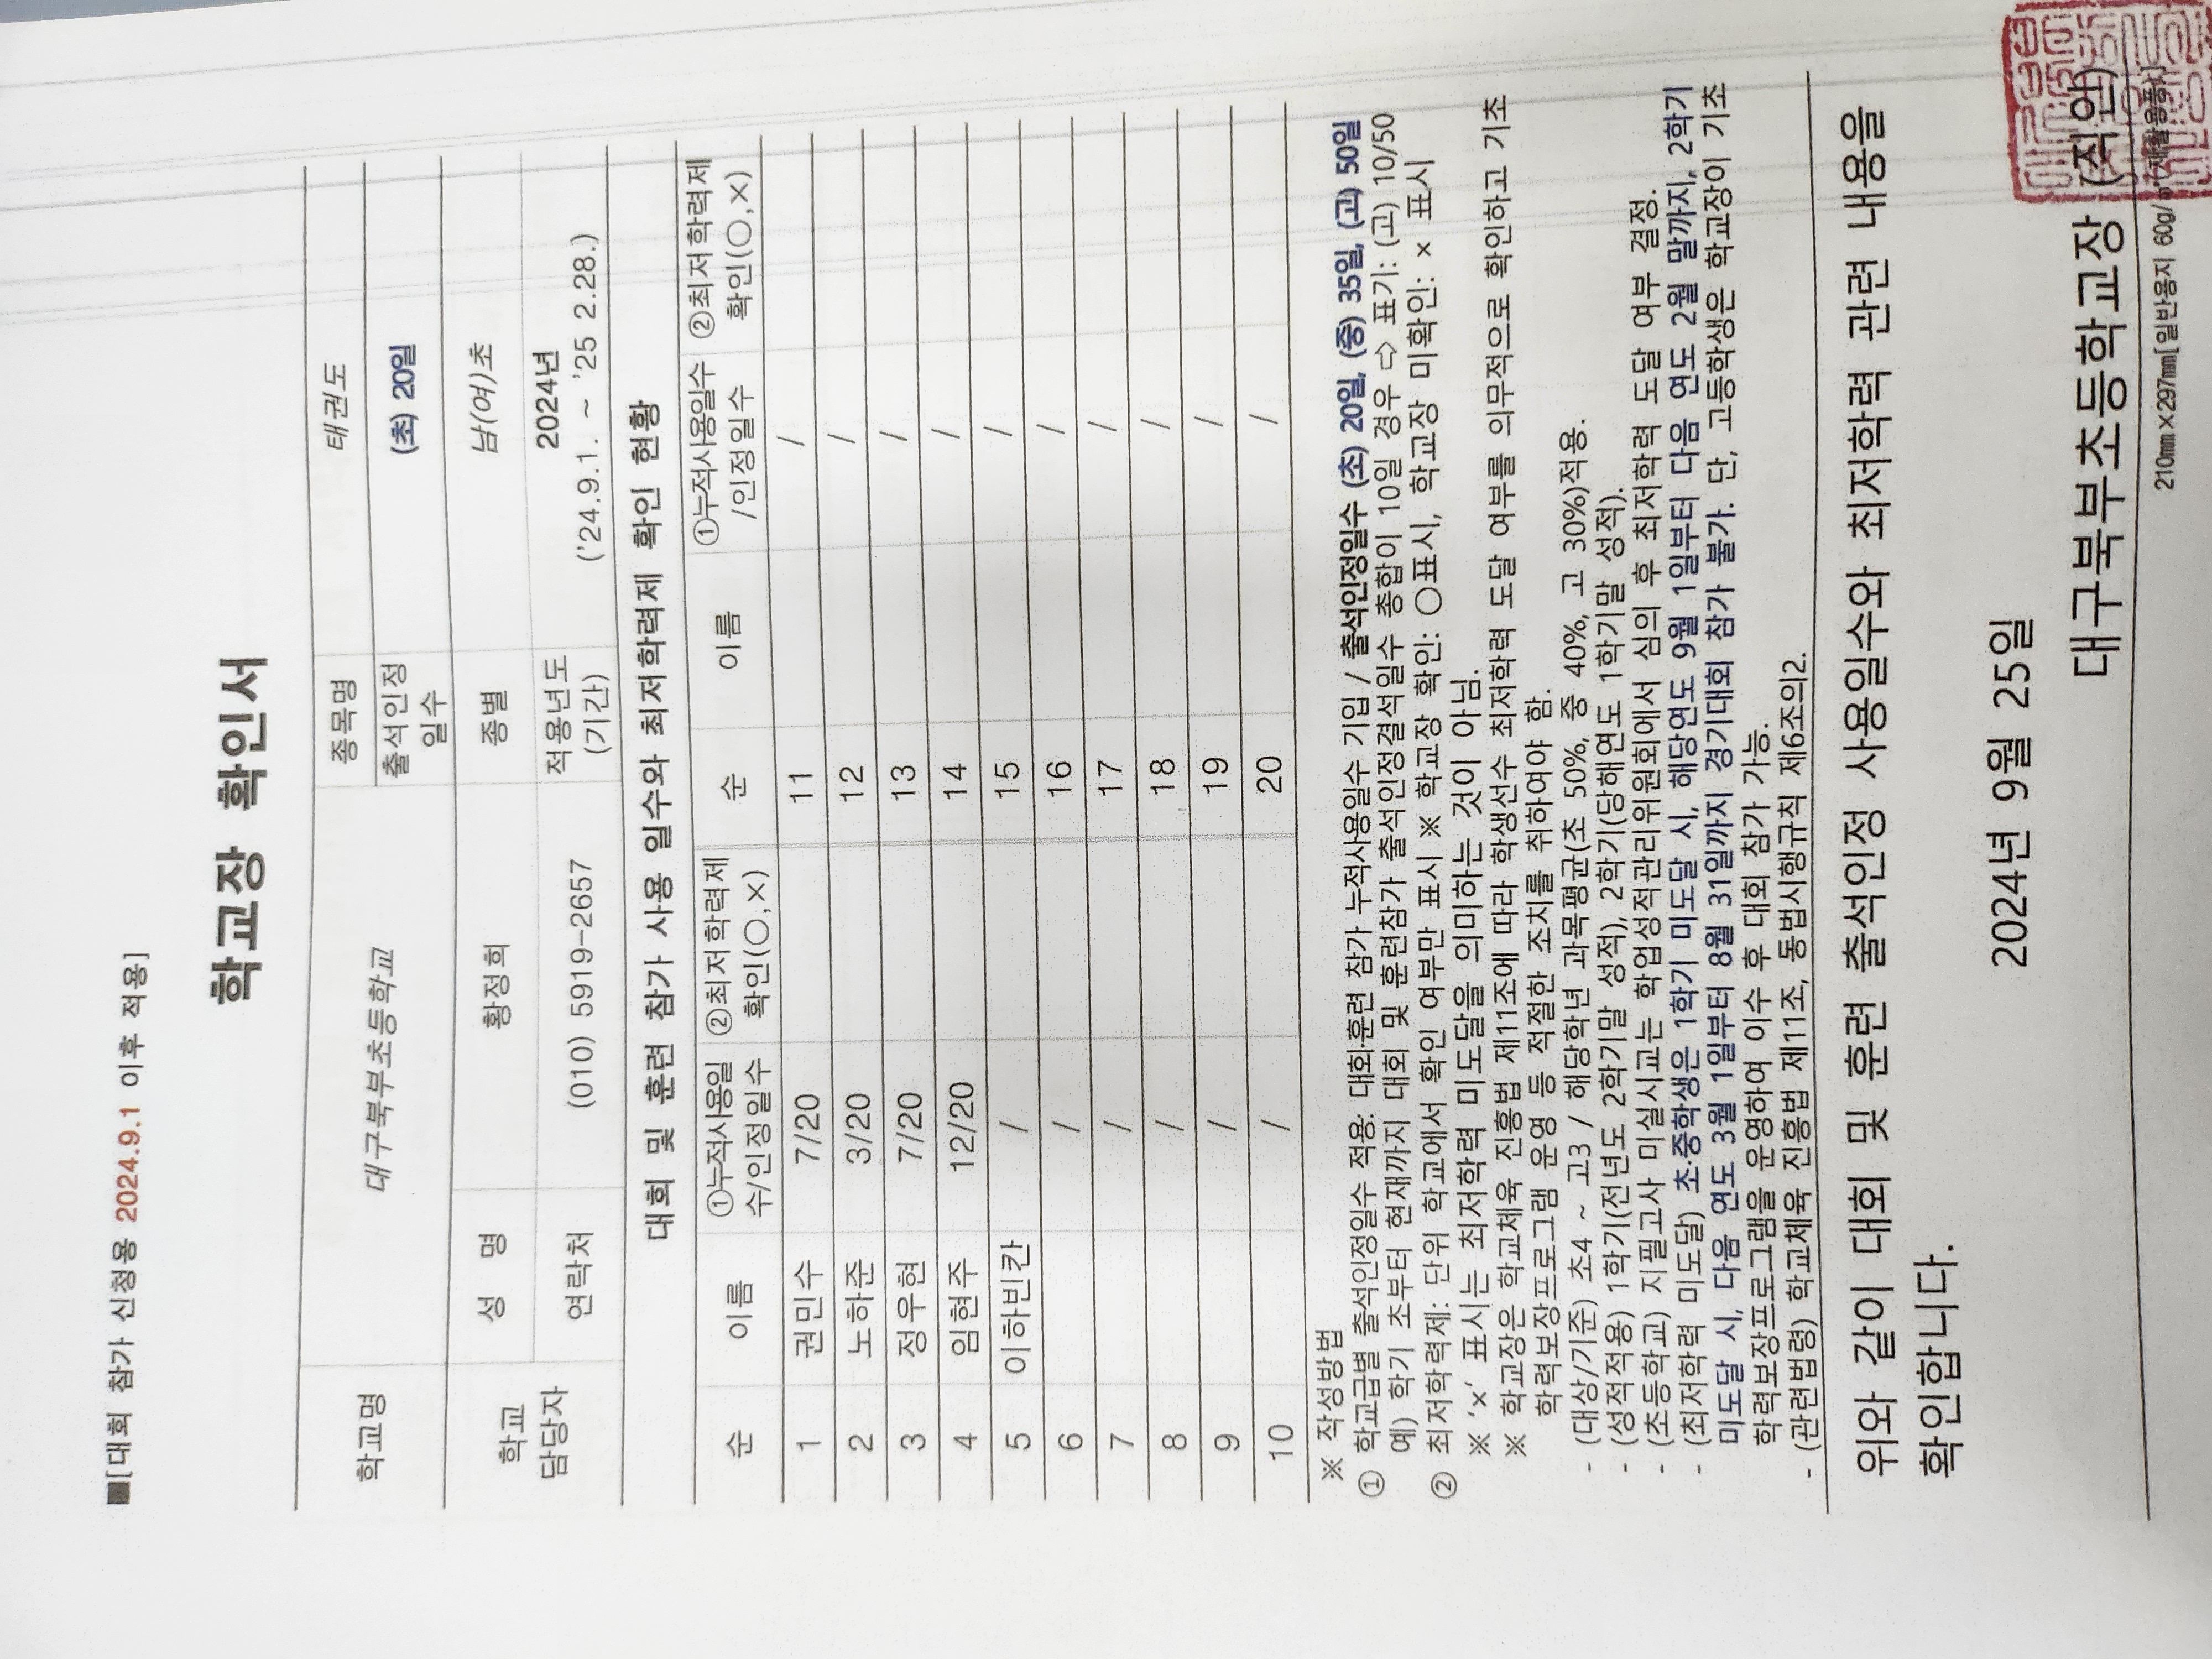 ■[대회 참가 신청용 2024.9.1 이후 적용]
학교장 확인서
학교명 대구북부초등학교 종목명 태권도
출석인정 일수 (초) 20일
학교 담당자 성 명 황정희 종별 남(여)초
연락처 (010) 5919-2657 적용년도 (기간) 2024년 ('24.9.1. ~ '25 2.28.)
대회 및 훈련 참가 사용 일수와 최저학력제 확인 현황
순 이름 ①누적사용일수/인정일수 ②최저학력제 확인(○,×) 순 이름 ①누적사용일수/인정일수 ②최저학력제 확인(○,×)
1 권민수 7/20 11 /
2 노하준 3/20 12 /
3 정우현 7/20 13 /
4 임현주 12/20 14 /
5 이하빈칸 / 15 /
6 / 16 /
7 / 17 /
8 / 18 /
9 / 19 /
10 / 20 /
※ 작성방법
① 학교급별 출석인정일수 적용: 대회·훈련 참가 누적사용일수 기입 / 출석인정일수 (초) 20일, (중) 35일, (고) 50일
예) 학기 초부터 현재까지 대회 및 훈련참가 출석인정결석일수 총합이 10일 경우 ⇨ 표기: (고) 10/50
② 최저학력제: 단위 학교에서 확인 여부만 표시 ※ 학교장 확인: ○표시, 학교장 미확인: × 표시
※ '×' 표시는 최저학력 미도달을 의미하는 것이 아님.
※ 학교장은 학교체육 진흥법 제11조에 따라 학생선수 최저학력 도달 여부를 의무적으로 확인하고 기초
학력보장프로그램 운영 등 적절한 조치를 취하여야 함.
- (대상/기준) 초4 ~ 고3 / 해당학년 과목평균(초 50%, 중 40%, 고 30%)적용.
- (성적적용) 1학기(전년도 2학기말 성적), 2학기(당해연도 1학기말 성적).
- (초등학교) 지필고사 미실시교는 학업성적관리위원회에서 심의 후 최저학력 도달 여부 결정.
- (최저학력 미도달) 초·중학생은 1학기 미도달 시, 해당연도 9월 1일부터 다음 연도 2월 말까지, 2학기
미도달 시, 다음 연도 3월 1일부터 8월 31일까지 경기대회 참가 불가. 단, 고등학생은 학교장이 기초
학력보장프로그램을 운영하여 이수 후 대회 참가 가능.
- (관련법령) 학교체육 진흥법 제11조, 동법시행규칙 제6조의2.
위와 같이 대회 및 훈련 출석인정 사용일수와 최저학력 관련 내용을
확인합니다.
2024년 9월 25일
대구북부초등학교장 (직인)
210㎜×297㎜[일반용지 60g/㎡(재활용품)]